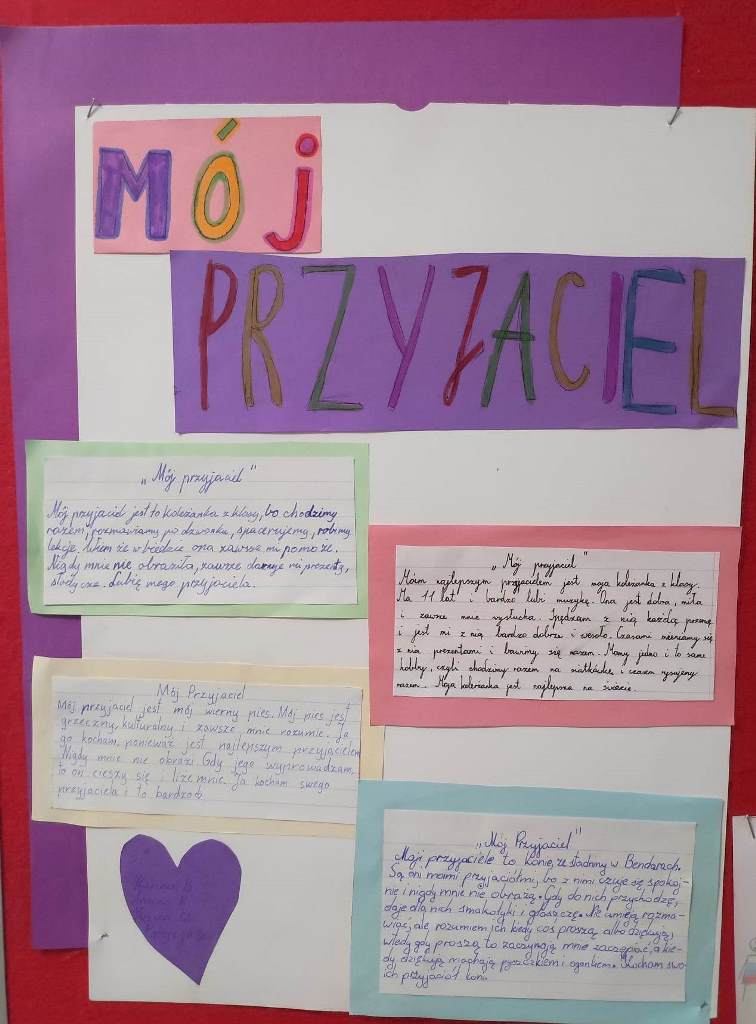 MÓJ
PRZYJACIEL
„Mój przyjaciel"
Mój przyjaciel jest to koleżanka z klasy, bo chodzimy
razem, rozmawiamy po dzwonku, spacerujemy, robimy
lekcje. Wiem że w biedzie ona zawsze mi pomoże.
Nigdy mnie nie obraziła, zawsze daruje mi prezenty,
słodycze. Lubię mego przyjaciela.
„Mój przyjaciel"
Moim najlepszym przyjacielem jest moja koleżanka z klasy.
Ma 11 lat i bardzo lubi muzykę. Ona jest dobra, miła
i zawsze mnie wysłucha. Spędzam z nią każdą przerwę
i jest mi z nią bardzo dobrze i wesoło. Czasami mieniamy się
z nią prezentami i bawimy się razem. Mamy jedno i to same
hobby, czyli chodzimy razem na siatkówkę, i czasem rysujemy
razem. Moja koleżanka jest najlepsza na świecie.
Mój Przyjaciel
Mój przyjaciel jest mój wierny pies. Mój pies jest
grzeczny, kulturalny i zawsze mnie rozumie. Ja
go kocham, ponieważ jest najlepszym przyjacielem.
Nigdy mnie nie obrazi. Gdy jego wyprowadzam,
to on cieszy się i liże mnie. Ja kocham swego
przyjaciela i to bardzo
„Mój Przyjaciel"
Moji przyjaciele to konie, ze stadniny w Bendarach.
Są oni moimi przyjaciółmi, bo z nimi czuje się spokoj-
nie i nigdy mnie nie obrażą. Gdy do nich przychodzę,
daje dla nich smakołyki i głoszczę. Nie umieją rozma-
wiać, ale rozumiem ich kiedy coś proszą albo dziękują,
wtedy gdy proszą to zaczynają mnie zaczepiać, a kie-
dy dziękują machają pyszczkiem i ogonkiem. Kocham swo-
ich przyjaciół koni.